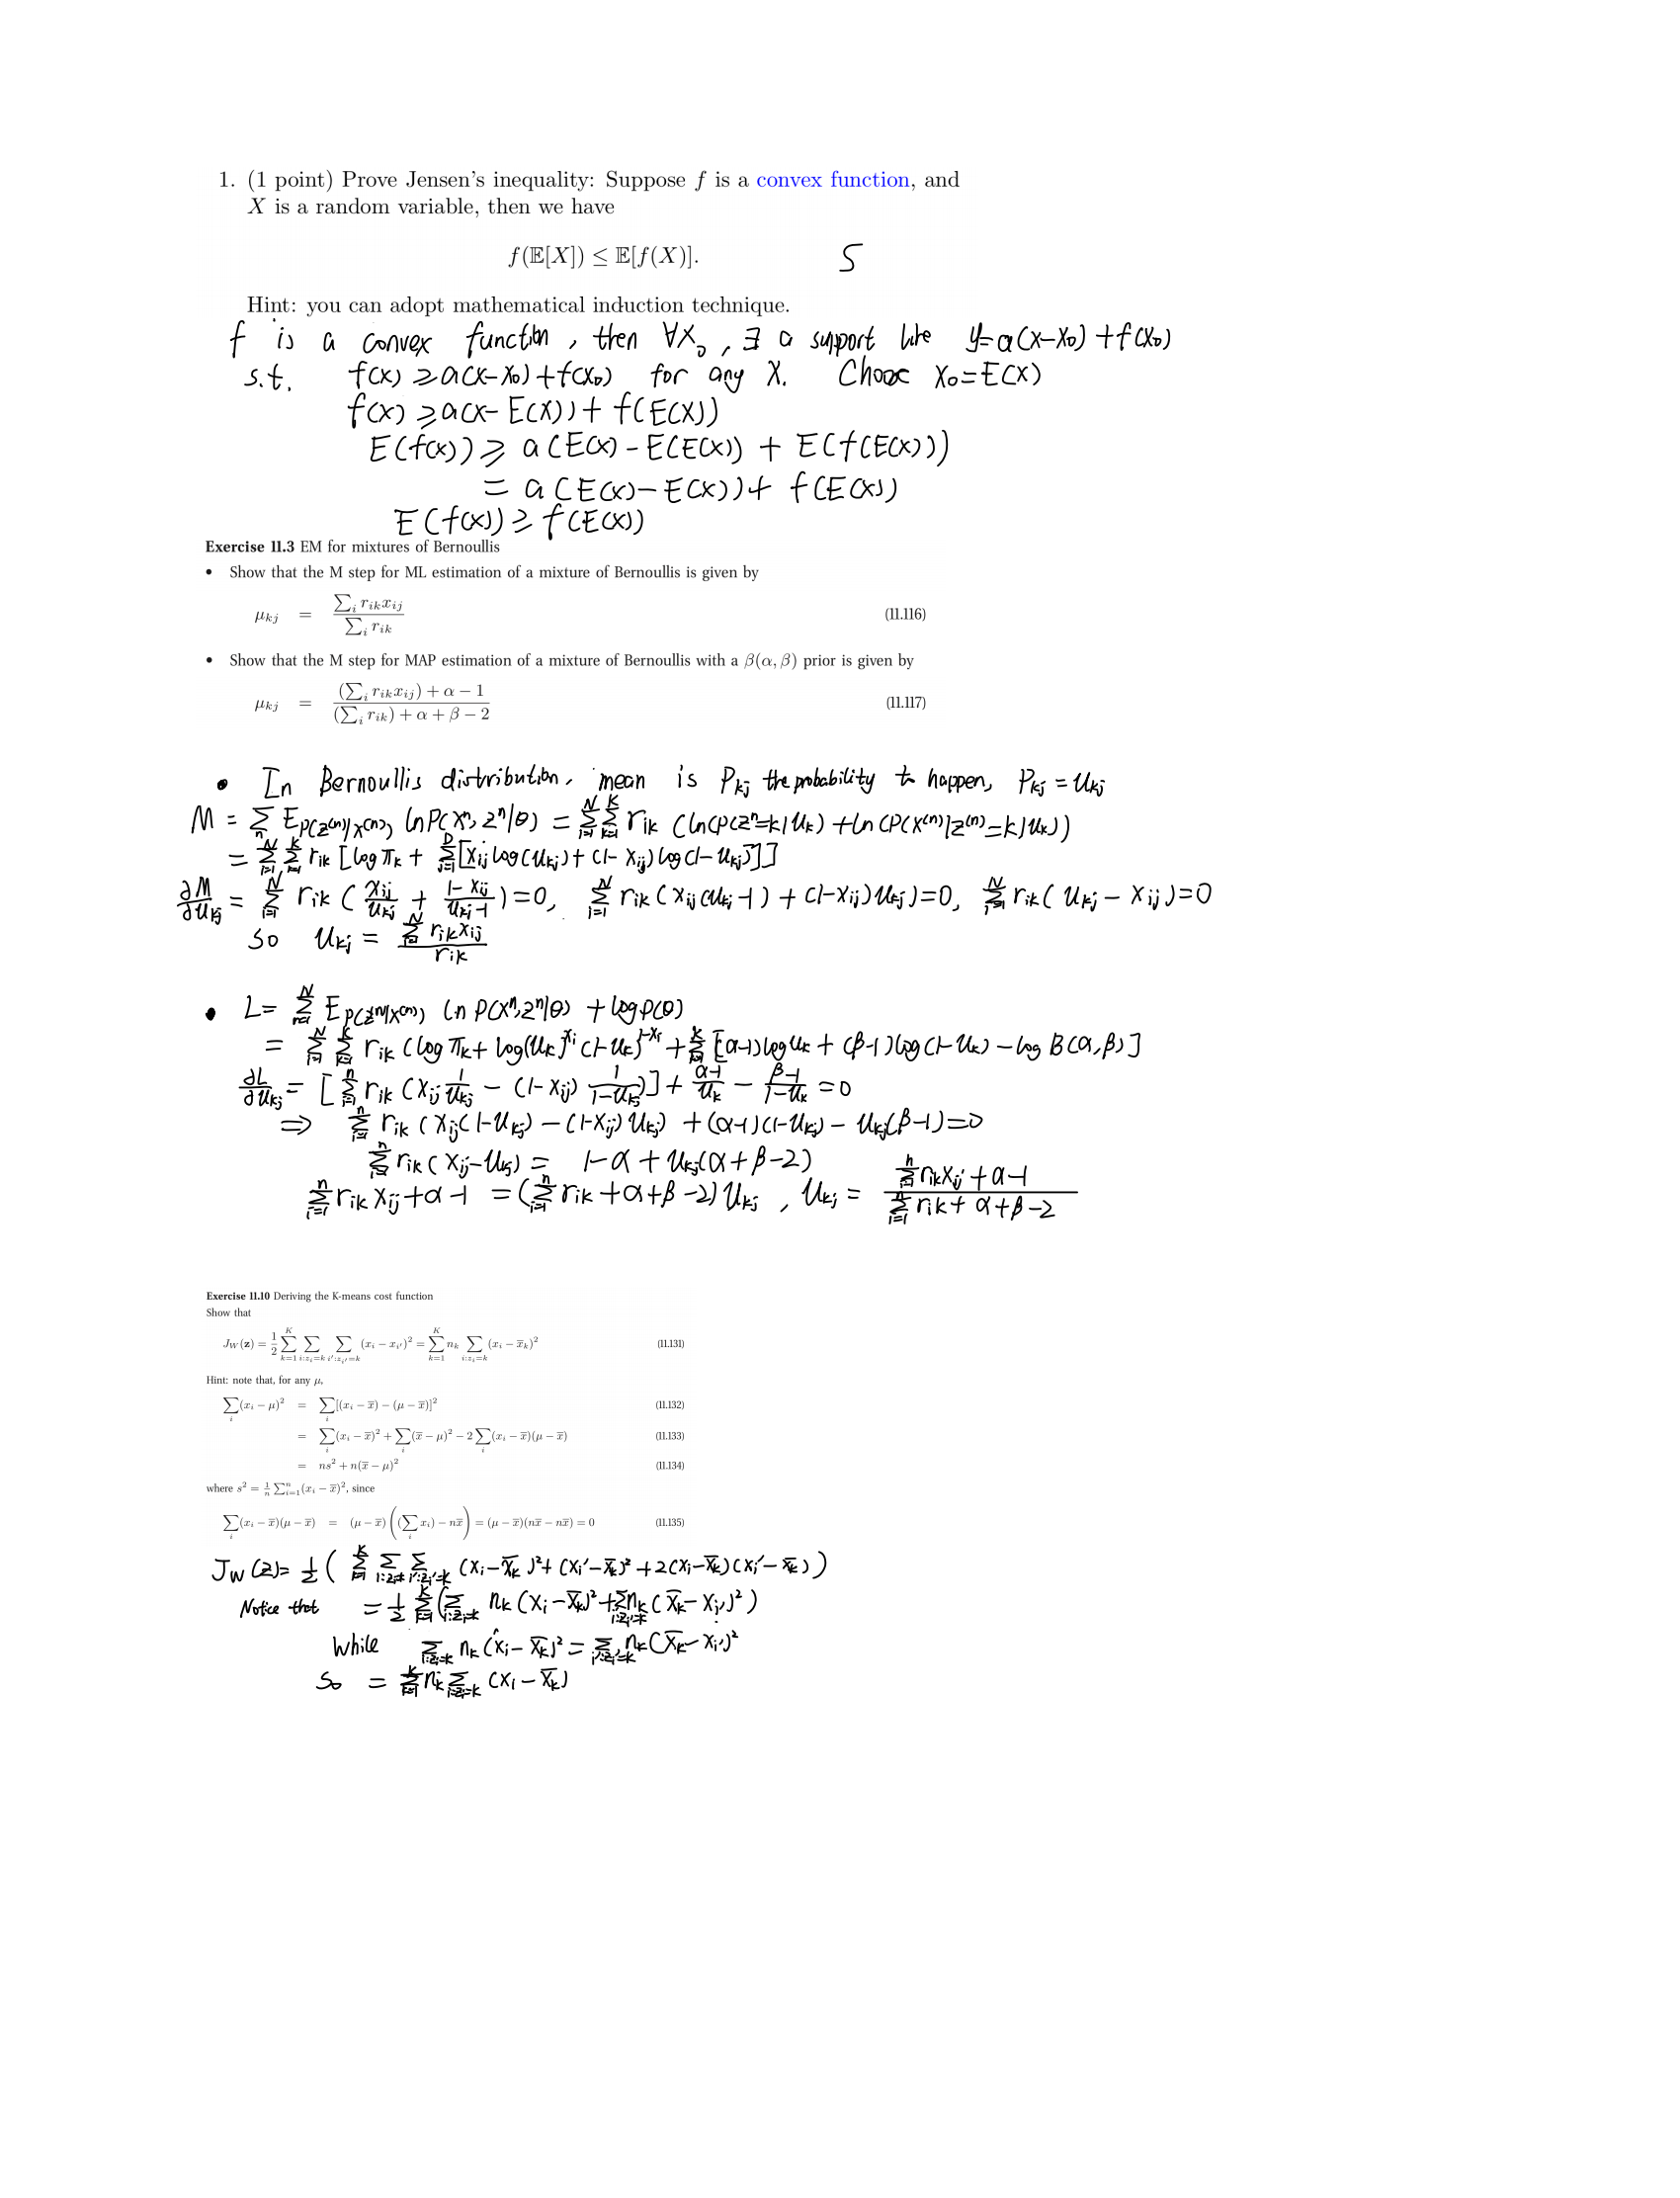 1. (1 point) Prove Jensen's inequality: Suppose f is a convex function, and
X is a random variable, then we have
f(𝔼[X]) ≤ 𝔼[f(X)].
S
Hint: you can adopt mathematical induction technique.
f is a convex function, then ∀X₀, ∃ a support line y=a(x-x₀)+f(x₀)
s.t. f(x) ≥ a(x-x₀)+f(x₀) for any X. Choose x₀=E(X)
f(x) ≥ a(x-E(X))+f(E(X))
E(f(x)) ≥ a(E(x)-E(E(X))) + E(f(E(X)))
= a(E(x)-E(x))+ f(E(X))
E(f(x)) ≥ f(E(X))
Exercise 11.3 EM for mixtures of Bernoullis
• Show that the M step for ML estimation of a mixture of Bernoullis is given by
μ_kj = ∑_i r_ik x_ij / ∑_i r_ik (11.116)
• Show that the M step for MAP estimation of a mixture of Bernoullis with a β(α, β) prior is given by
μ_kj = ((∑_i r_ik x_ij) + α − 1) / ((∑_i r_ik) + α + β − 2) (11.117)
• In Bernoullis distribution, mean is P_kj the probability to happen, P_kj = u_kj
M = ∑_n E_P(z^(n)|x^(n)) ln P(x^n, z^n|θ) = ∑_{i=1}^N ∑_{k=1}^K r_ik (ln(P(z^n=k|u_k) + ln(P(x^(n)|z^(n)=k|u_k))
= ∑_{i=1}^N ∑_{k=1}^K r_ik [log π_k + ∑_{j=1}^D [x_ij log(u_kj) + (1-x_ij) log(1-u_kj)]]
∂M/∂u_kj = ∑_{i=1}^N r_ik (x_ij/u_kj + (1-x_ij)/(u_kj-1)) = 0, ∑_{i=1}^N r_ik (x_ij(u_kj-1) + (1-x_ij)u_kj) = 0, ∑_{i=1}^N r_ik (u_kj - x_ij) = 0
so u_kj = ∑_{i=1}^N r_ik x_ij / r_ik
• L = ∑_{n=1}^N E_P(z^(n)|x^(n)) ln P(x^n, z^n|θ) + log P(θ)
= ∑_{i=1}^N ∑_{k=1}^K r_ik (log π_k + log(u_k)^{x_i} (1-u_k)^{1-x_i} + ∑_{k=1}^K [(α-1) log u_k + (β-1) log(1-u_k) - log B(α,β)]
∂L/∂u_kj = [∑_{i=1}^n r_ik (x_ij 1/u_kj - (1-x_ij) 1/(1-u_kj))] + (α-1)/u_k - (β-1)/(1-u_k) = 0
⇒ ∑_{i=1}^n r_ik (x_ij(1-u_kj) - (1-x_ij)u_kj) + (α-1)(1-u_kj) - u_kj(β-1) = 0
∑_{i=1}^n r_ik (x_ij - u_kj) = 1-α + u_kj(α+β-2)
∑_{i=1}^n r_ik x_ij + α-1 = (∑_{i=1}^n r_ik + α+β-2) u_kj , u_kj = (∑_{i=1}^n r_ik x_ij + α-1) / (∑_{i=1}^n r_ik + α+β-2)
Exercise 11.10 Deriving the K-means cost function
Show that
J_W(z) = 1/2 ∑_{k=1}^K ∑_{i:z_i=k} ∑_{i':z_i'=k} (x_i − x_i')² = ∑_{k=1}^K n_k ∑_{i:z_i=k} (x_i − x̄_k)² (11.131)
Hint: note that, for any μ,
∑_i (x_i − μ)² = ∑_i [(x_i − x̄) − (μ − x̄)]² (11.132)
= ∑_i (x_i − x̄)² + ∑_i (x̄ − μ)² − 2 ∑_i (x_i − x̄)(μ − x̄) (11.133)
= ns² + n(x̄ − μ)² (11.134)
where s² = 1/n ∑_{i=1}^n (x_i − x̄)², since
∑_i (x_i − x̄)(μ − x̄) = (μ − x̄) ((∑_i x_i) − nx̄) = (μ − x̄)(nx̄ − nx̄) = 0 (11.135)
J_W(z) = 1/2 ( ∑_{k=1}^K ∑_{i:z_i=k} ∑_{i':z_i'=k} (x_i - x̄_k)² + (x_i' - x̄_k)² + 2(x_i - x̄_k)(x_i' - x̄_k) )
Notice that = 1/2 ∑_{k=1}^K ( ∑_{i:z_i=k} n_k (x_i - x̄_k)² + ∑_{i':z_i'=k} n_k (x̄_k - x_i')² )
While ∑_{i:z_i=k} n_k (x_i - x̄_k)² = ∑_{i':z_i'=k} n_k (x̄_k - x_i')²
So = ∑_{k=1}^K n_k ∑_{i:z_i=k} (x_i - x̄_k)